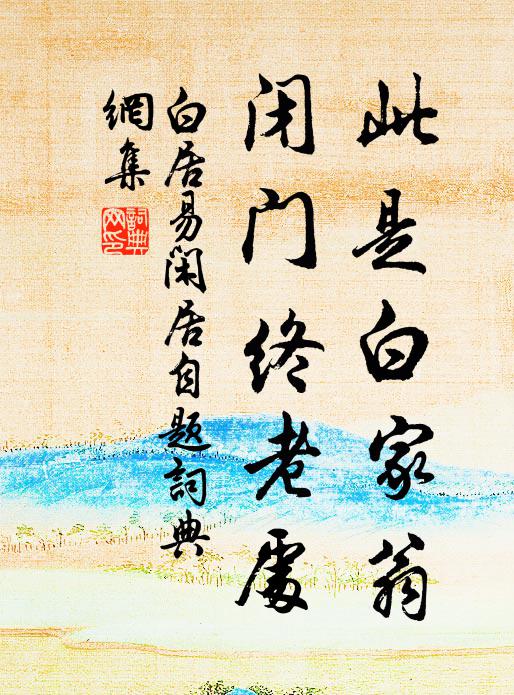 此是白家翁
闭门终老處
白居易闲居自题詞典
網集
詞典
网印